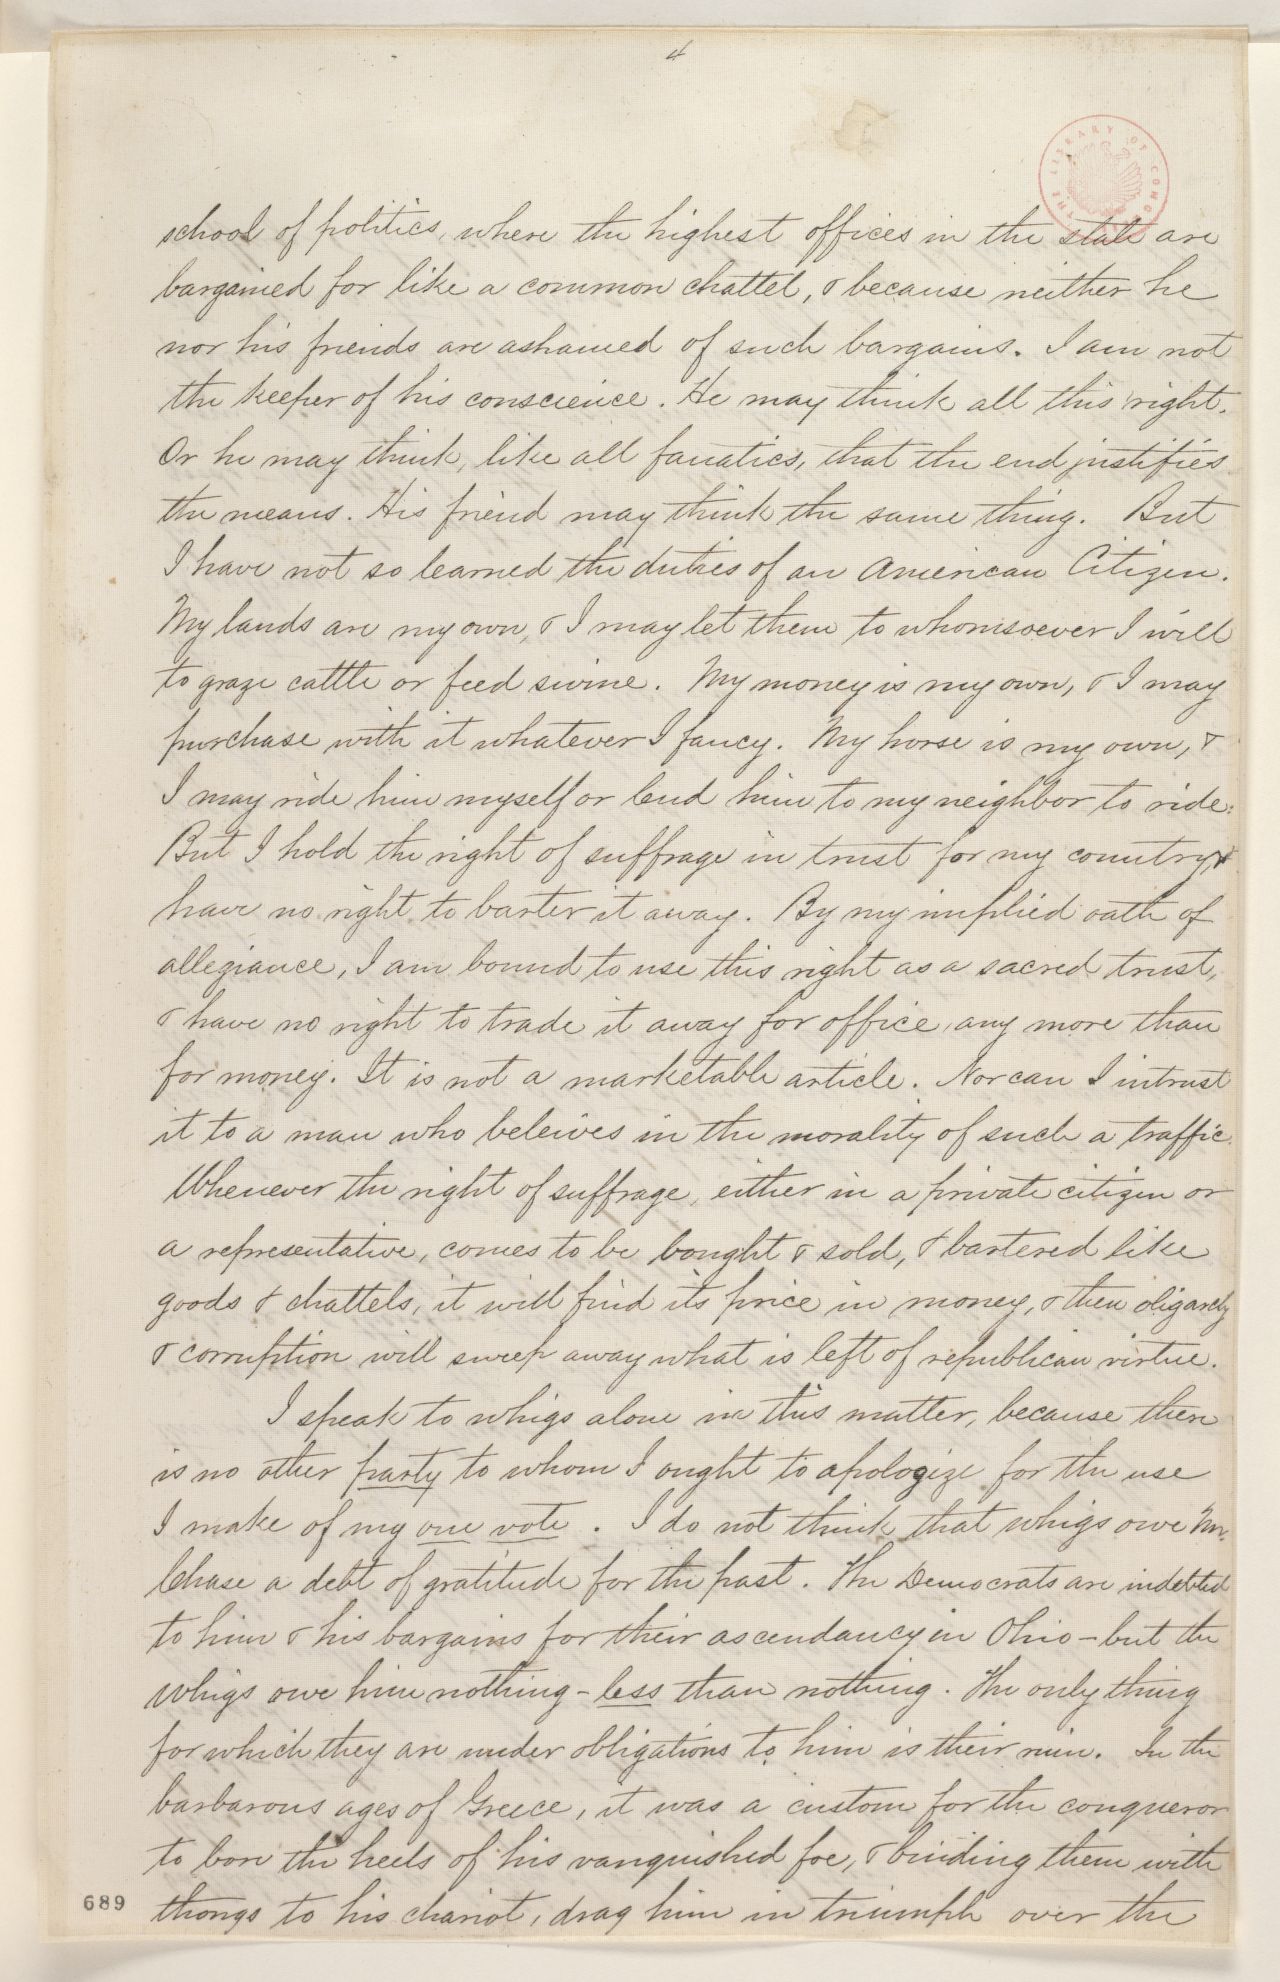 4
THE LIBRARY OF CONGRESS
school of politics, where the highest offices in the state are
bargained for like a common chattel, & because neither he
nor his friends are ashamed of such bargains. I am not
the keeper of his conscience. He may think all this right.
Or he may think, like all fanatics, that the end justifies
the means. His friend may think the same thing. But
I have not so learned the duties of an American Citizen.
My lands are my own, & I may let them to whomsoever I will
to graze cattle or feed swine. My money is my own, & I may
purchase with it whatever I fancy. My horse is my own, &
I may ride him myself or lend him to my neighbor to ride:
But I hold the right of suffrage in trust for my country, &
have no right to barter it away. By my implied oath of
allegiance, I am bound to use this right as a sacred trust,
& have no right to trade it away for office, any more than
for money. It is not a marketable article. Nor can I intrust
it to a man who beleives in the morality of such a traffic.
Whenever the right of suffrage, either in a private citizen or
a representative, comes to be bought & sold, & bartered like
goods & chattels, it will find its price in money, & then oligarchy
& corruption will sweep away what is left of republican virtue.
I speak to whigs alone in this matter, because there
is no other party to whom I ought to apologize for the use
I make of my one vote. I do not think that whigs owe Mr.
Chase a debt of gratitude for the past. The Democrats are indebted
to him & his bargains for their ascendancy in Ohio - but the
whigs owe him nothing - less than nothing. The only thing
for which they are under obligations to him is their ruin. In the
barbarous ages of Greece, it was a custom for the conqueror
to bore the heels of his vanquished foe, & binding them with
thongs to his chariot, drag him in triumph over the
689